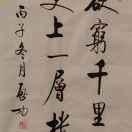 欲窮千里
更上一層樓
丙子冬月啟功